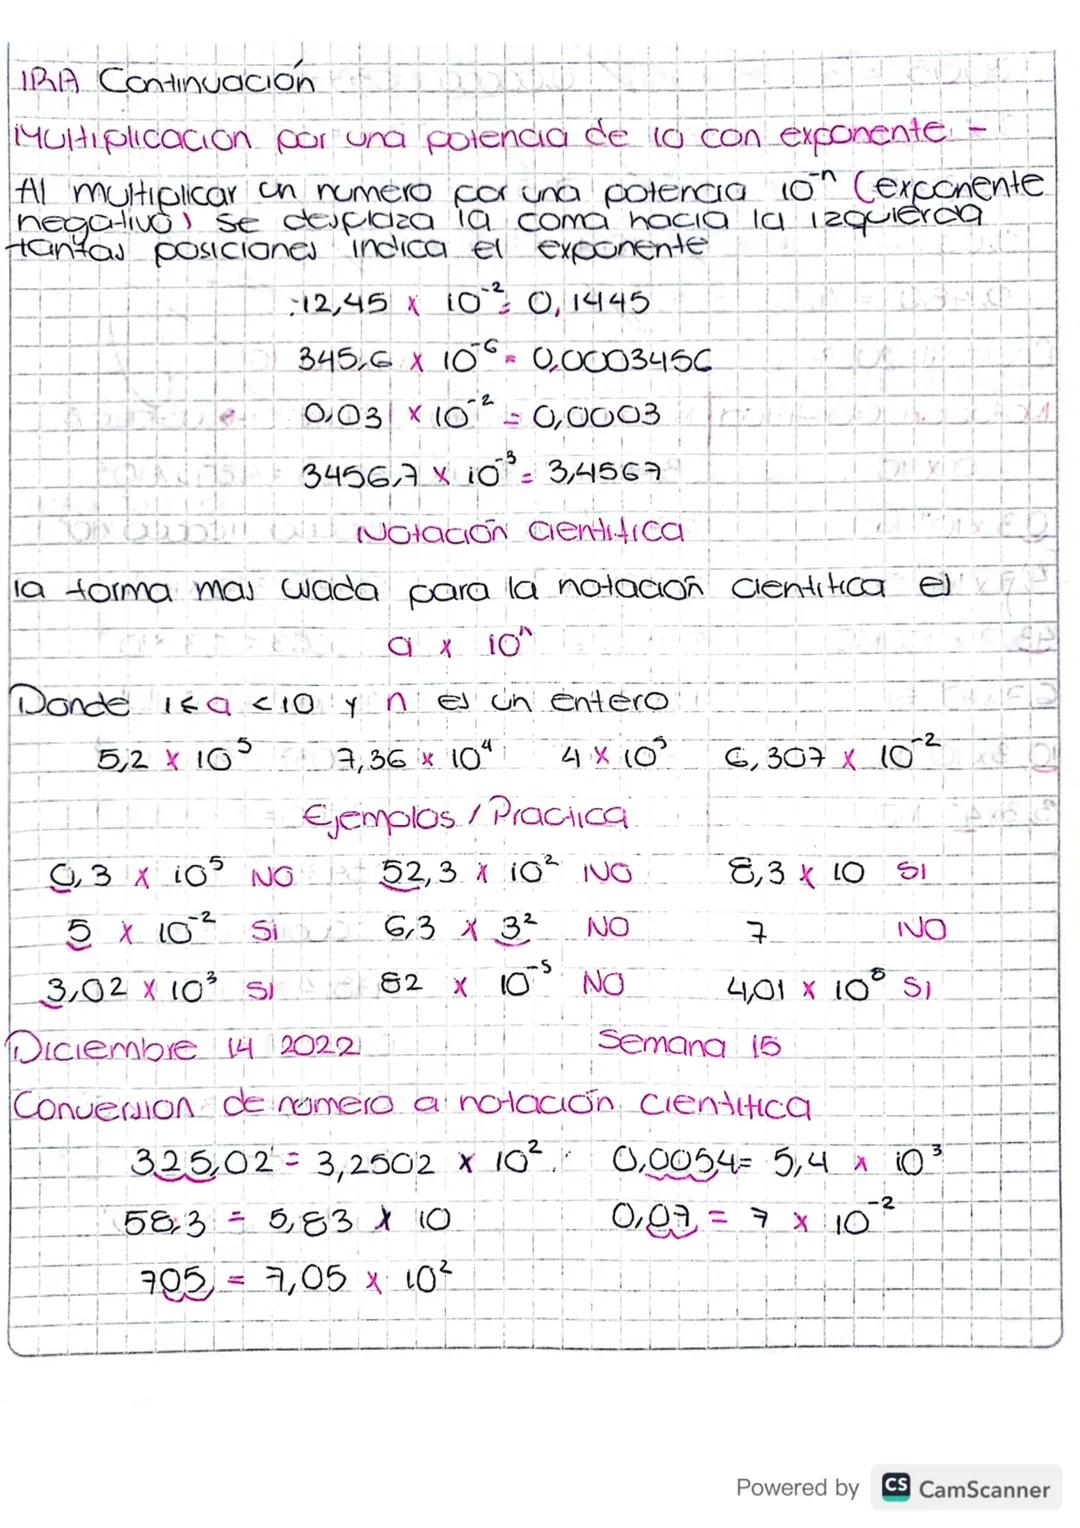 IRA Continuación
Multiplicacion por una potencia de 10 con exponente -
Al multiplicar un numero por una potencia 10⁻ⁿ (exponente
negativo) se desplaza la coma hacia la izquierda
tantas posiciones indica el exponente
12,45 x 10⁻² = 0,1445
345,6 x 10⁻⁶ = 0,0003456
0,031 x 10⁻² = 0,0003
3456,7 x 10⁻³ = 3,4567
Notación cientifica
la forma mas usada para la notación cientifica es
a x 10ⁿ
Donde 1≤a <10 y n es un entero
5,2 x 10⁵ 7,36 x 10⁴ 4 x 10⁵ 6,307 x 10⁻²
Ejemplos / Practica
0,3 x 10⁵ NO 52,3 x 10² NO 8,3 x 10 SI
5 x 10⁻² Si 6,3 x 3² NO 7 NO
3,02 x 10³ SI 82 x 10⁻⁵ NO 4,01 x 10⁸ SI
Diciembre 14 2022 Semana 15
Conversion de numero a notación cientifica
325,02 = 3,2502 x 10² 0,0054 = 5,4 x 10³
58,3 = 5,83 x 10 0,07 = 7 x 10⁻²
705 = 7,05 x 10²
Powered by CS CamScanner